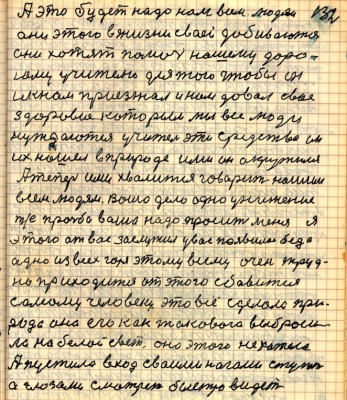 132
А это будет надо нам всем людям
они этого в жизни своей добиваются
они хотят помоч нашему доро-
гому учителю для того чтобы он
к нам приезжал и нам довал свое
здоровие которым мы все люди
нуждаются учител эти средства он
их нашел в природе ими он окружился
А тепер ими хвалится говарит нашим
всем людям. Вашо дело одно унижение
и прозба ваша надо просит меня я
этого от вас заслужил у вас полвила беда
адно из всех горя этому всему очен труд-
но приходится от этого збавится
самому человеку это всё сделала при-
рода она его как таковога выброси-
ла на белой свет. оно этого не хотела
А пустила в ход своими ногами ступит
а глозами смотрет быстро видет